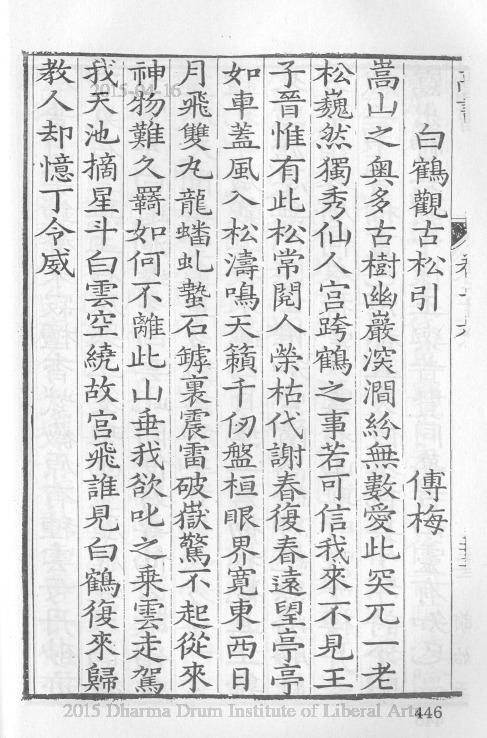 白鶴觀古松引　傅梅
嵩山之奧多古樹幽巖深澗紛無數愛此突兀一老
松巍然獨秀仙人宮跨鶴之事若可信我來不見王
子晉惟有此松常閱人榮枯代謝春復春遠望亭亭
如車蓋風入松濤鳴天籟千仞盤桓眼界寬東西日
月飛雙丸龍蟠虬蟄石罅裏震雷破嶽驚不起從來
神物難久羇如何不離此山垂我欲叱之乘雲走駕
我天池摘星斗白雲空繞故宮飛誰見白鶴復來歸
教人却憶丁令威
2015-04-16
2015 Dharma Drum Institute of Liberal Arts
446